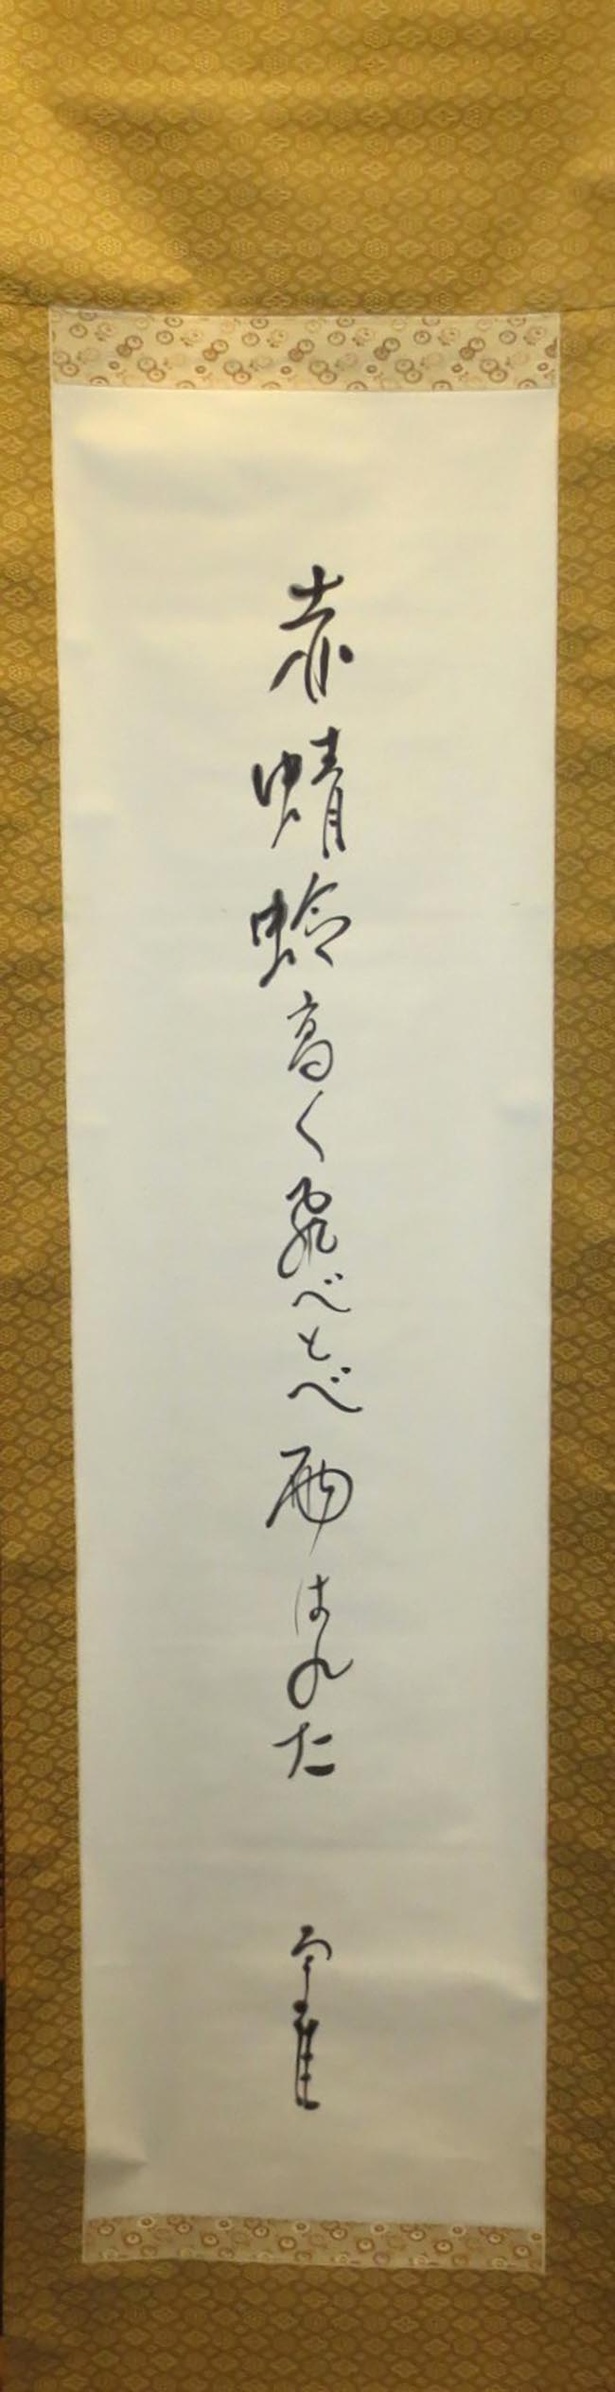 赤蜻蛉高く飛べとべ雨はれた